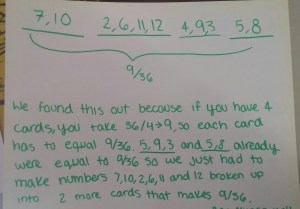 7,10 2,6,11,12 4,9,3 5,8
9/36
We found this out because if you have 4
cards, you take 36/4→9, so each card
has to equal 9/36. 5,9,3 and 5,8 already
were equal to 9/36 so we just had to
make numbers 7,10,2,6,11 and 12 broken up
into 2 more cards that makes 9/36.